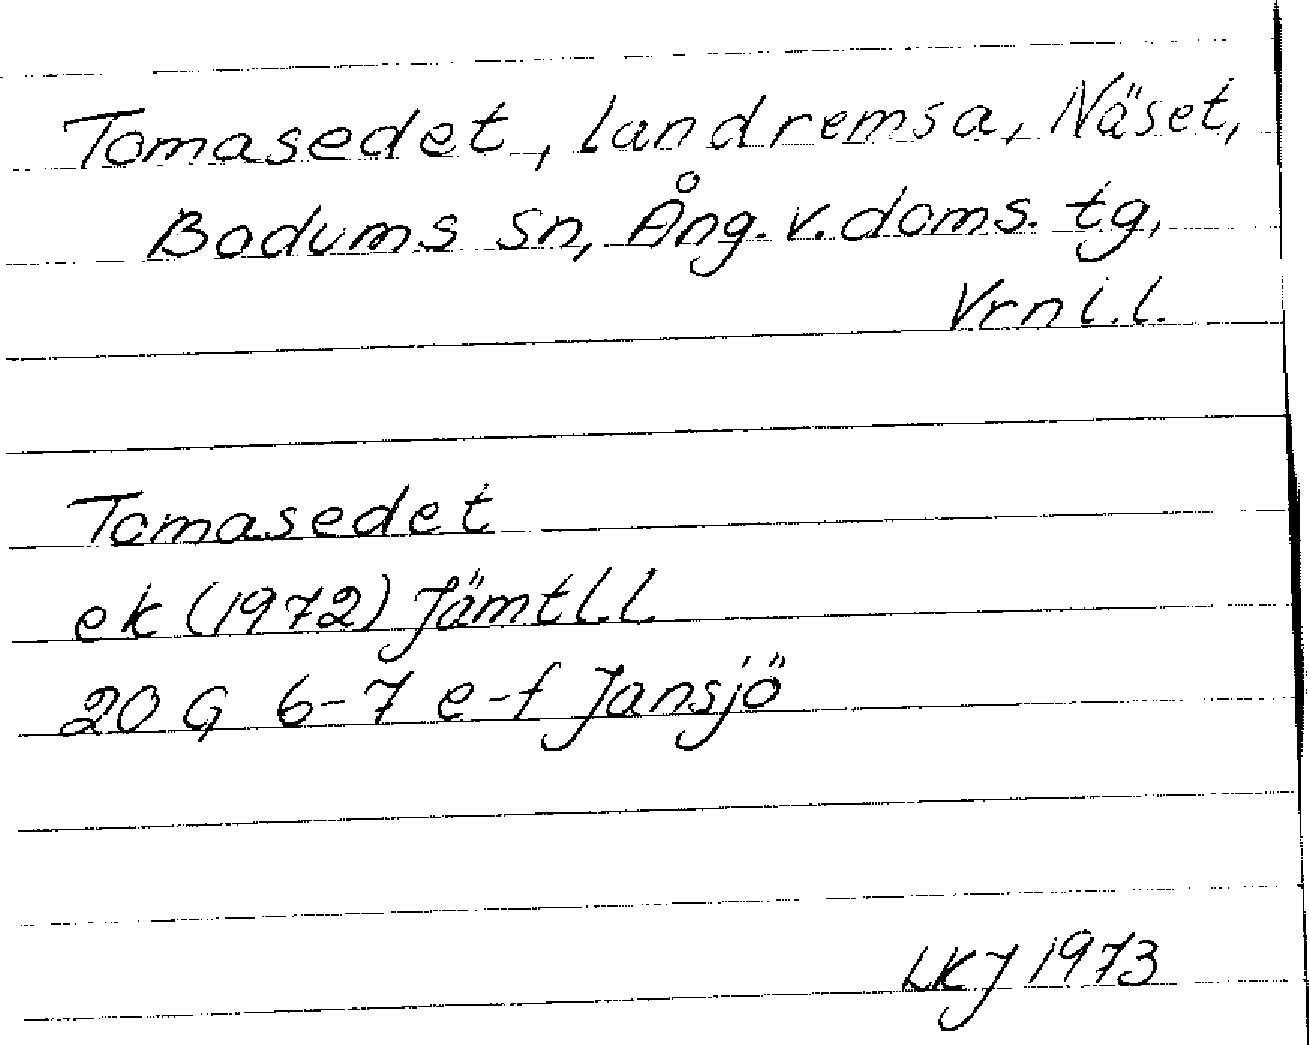 Tomasedet, landremsa, Näset,
Bodums sn, Ång. v. doms. tg,
Vrnl.l.
Tomasedet
ek (1972) Jämtl.l.
20 G 6-7 e-f Jansjö
LKJ 1973